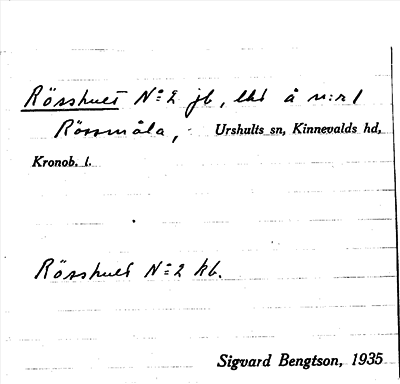 Rösshult No 2 jb, lht å n:r 1
Rössmåla, Urshults sn, Kinnevalds hd,
Kronob. l.
Rösshult No 2 kb.
Sigvard Bengtson, 1935